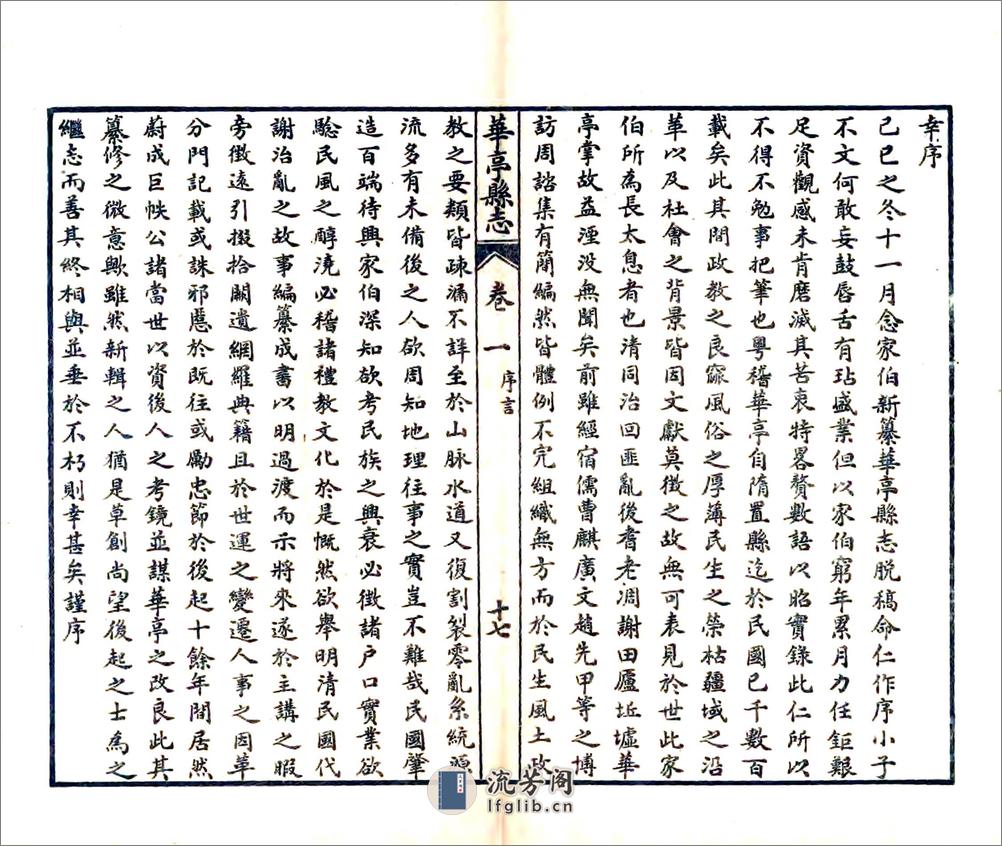 幸序
己巳之冬十一月念家伯新纂華亭縣志脱稿命仁作序小子
不文何敢妄鼓唇舌有玷盛業但以家伯窮年累月力任鉅艱
足資觀感未肯磨滅其苦衷特畧贅數語以昭實錄此仁所以
不得不勉事把筆也粤稽華亭自隋置縣迄於民國已千數百
載矣此其間政教之良窳風俗之厚薄民生之榮枯疆域之沿
革以及社會之背景皆因文獻莫徴之故無可表見於世此家
伯所為長太息者也清同治回匪亂後耆老凋謝田廬坵墟華
亭掌故益湮没無聞矣前雖經宿儒曹麒廣文趙先甲等之博
訪周諮集有簡編然皆體例不完組織無方而於民生風土政
華亭縣志 卷一 序言 十七
教之要類皆疎漏不詳至於山脉水道又復割裂零亂系統源
流多有未備後之人欲周知地理往事之實豈不難哉民國肇
造百端待興家伯深知欲考民族之興衰必徴諸户口實業欲
騐民風之醇澆必稽諸禮教文化於是慨然欲舉明清民國代
謝治亂之故事編纂成書以明過渡而示將來遂於主講之暇
旁徴遠引掇拾闕遺網羅典籍且於世運之變遷人事之因革
分門記載或誅邪惡於既往或勵忠節於後起十餘年間居然
蔚成巨帙公諸當世以資後人之考鏡並謀華亭之改良此其
纂修之微意歟雖然新輯之人猶是草創尚望後起之士為之
繼志而善其終相與並垂於不朽則幸甚矣謹序
流芳阁
lfglib.cn